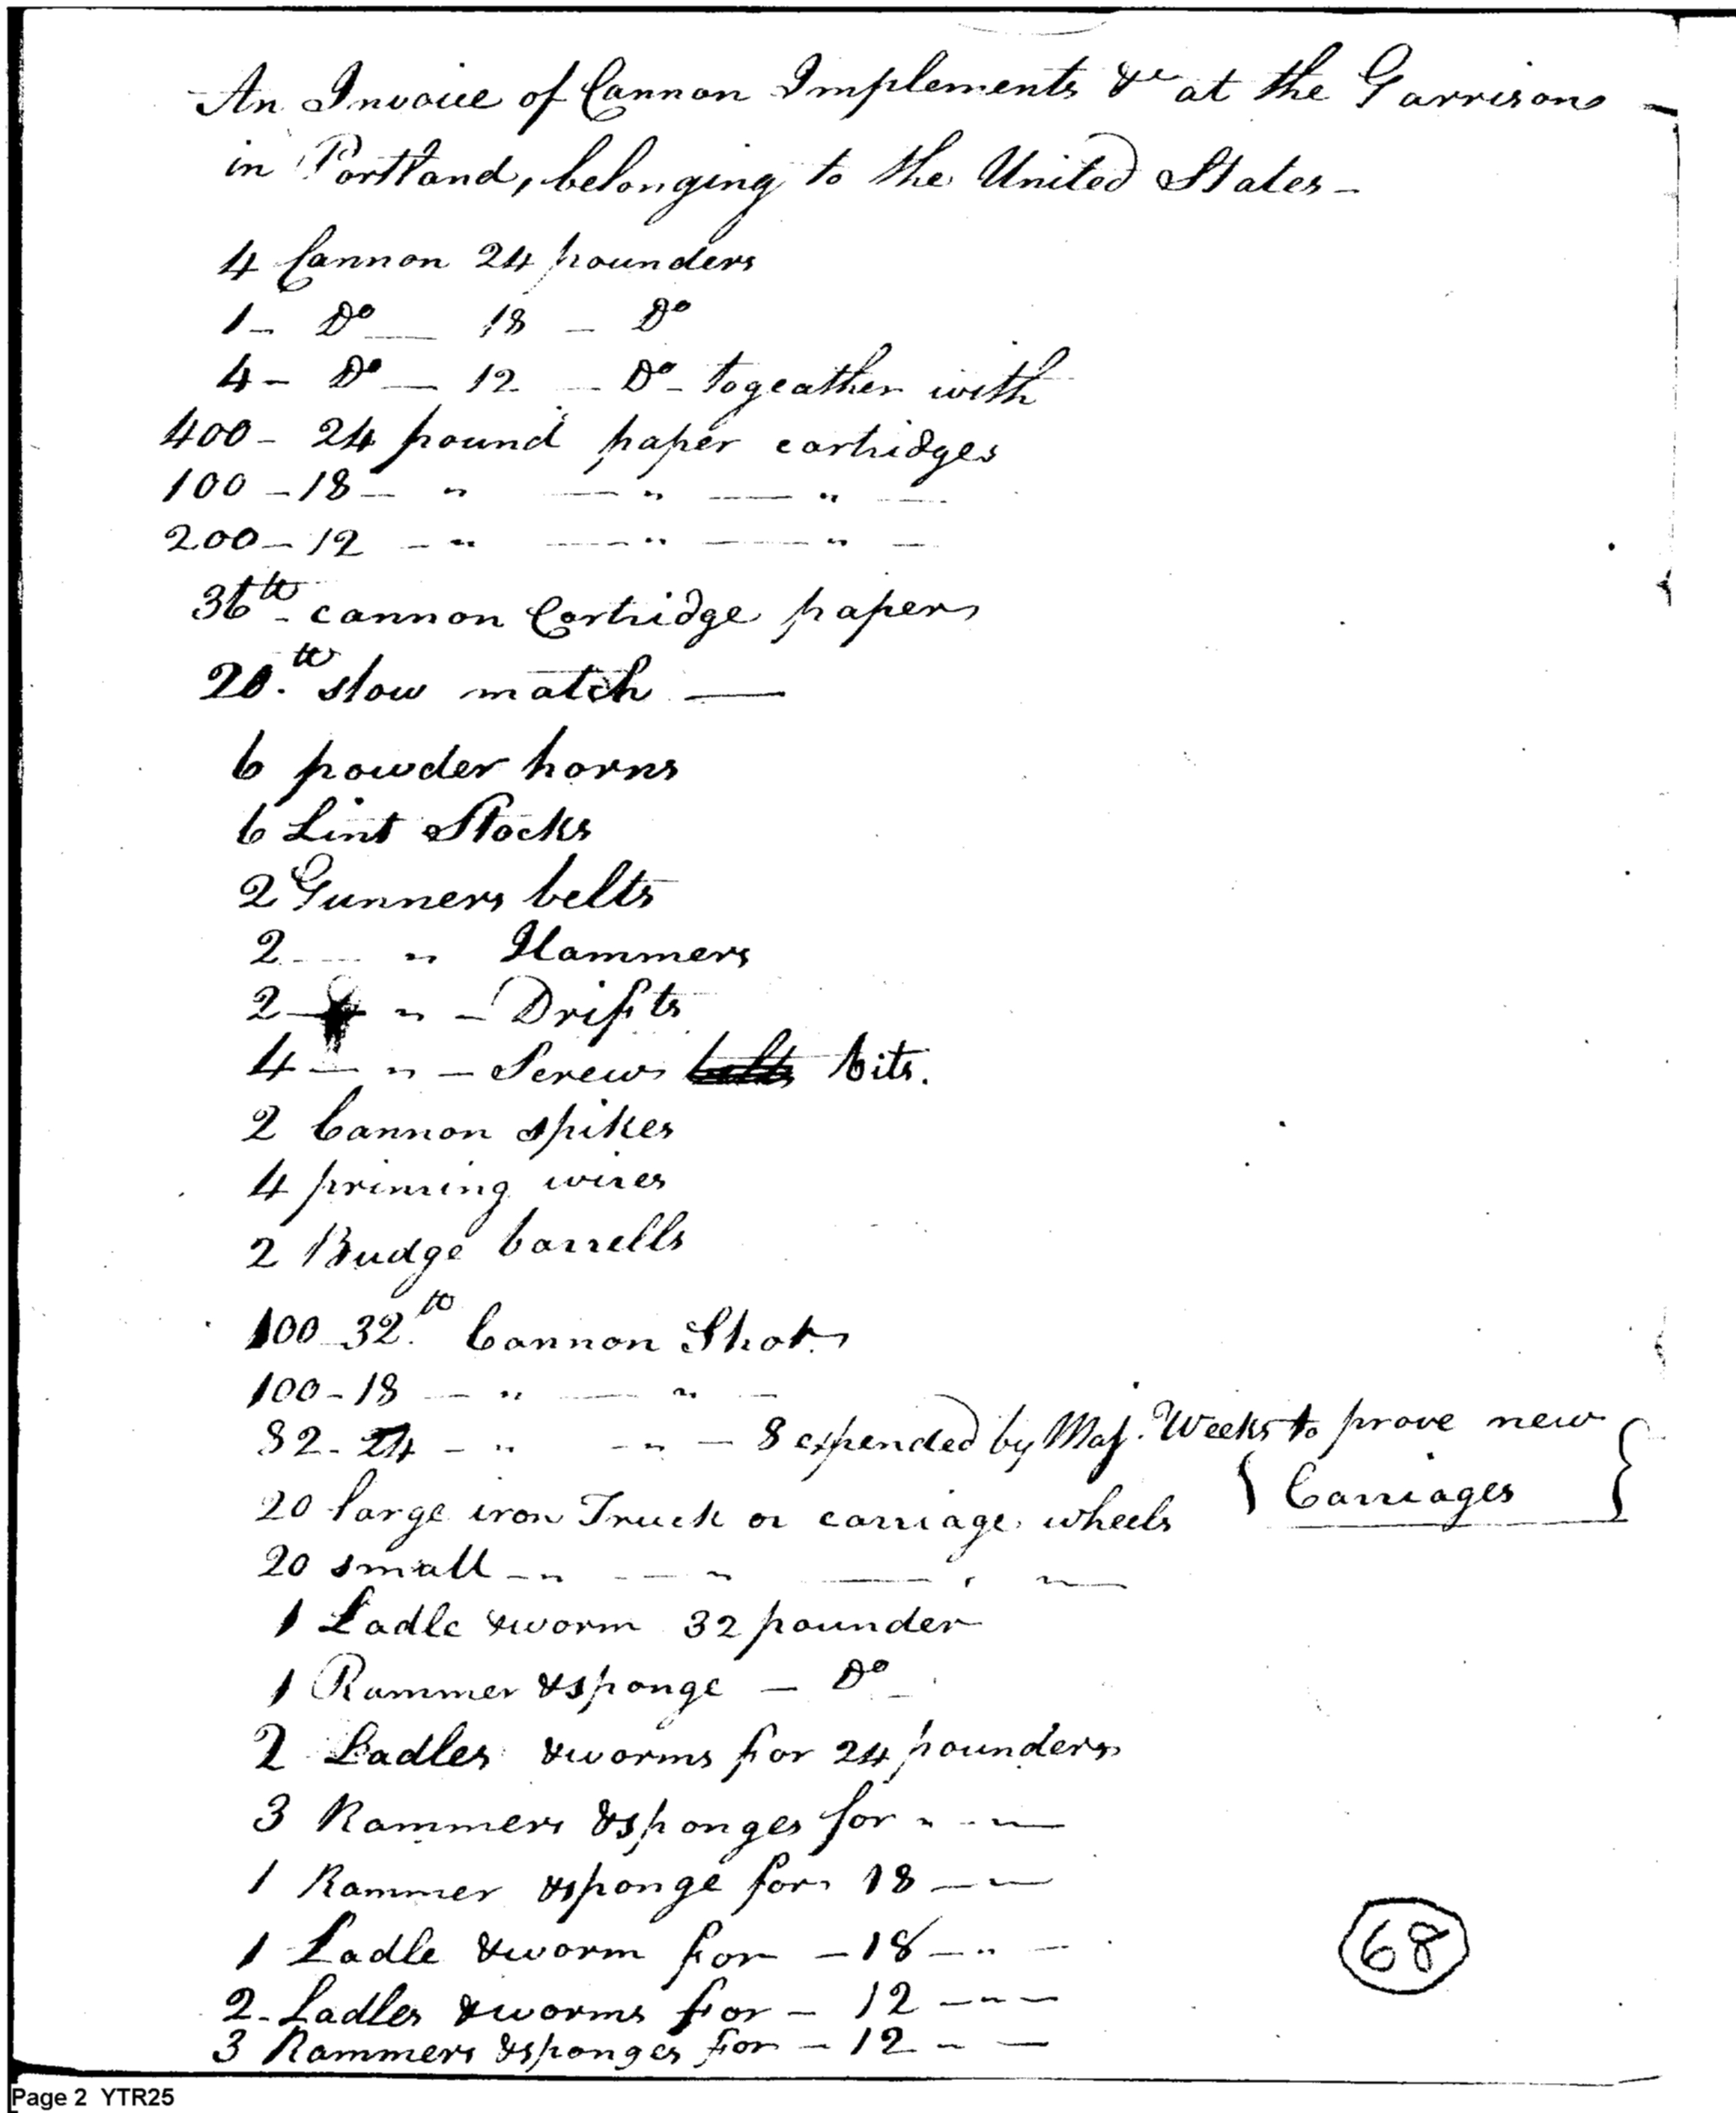 An Invoice of Cannon Implements &c at the Garrison
in Portland, belonging to the United States -
4 Cannon 24 pounders
1 - Do - 18 - Do
4 - Do - 12 - Do - togeather with
400 - 24 pound paper cartridges
100 - 18 - " - " - " -
200 - 12 - " - " - " -
36 lb - cannon Cartridge papers
20. lb slow match -
6 powder horns
6 Lint Stocks
2 Gunners belts
2 - " Hammers
2 - " - Drifts
4 - " - Screw belts bits.
2 Cannon spikes
4 priming wires
2 Budge barrells
100 - 32. lb Cannon Shot
100 - 18 - " - " -
82 - 24 - " - " - 8 expended by Maj. Weeks to prove new
{ Carriages }
20 large iron Truck or carriage wheels
20 small - " - " - " -
1 Ladle & worm 32 pounder
1 Rammer & sponge - Do -
2 Ladles & worms for 24 pounders
3 Rammers & sponges for " - " -
1 Rammer & sponge for 18 - " -
1 Ladle & worm for - 18 - " -
2 - Ladles & worms for - 12 - " -
3 Rammers & sponges for - 12 " -
68
Page 2 YTR25